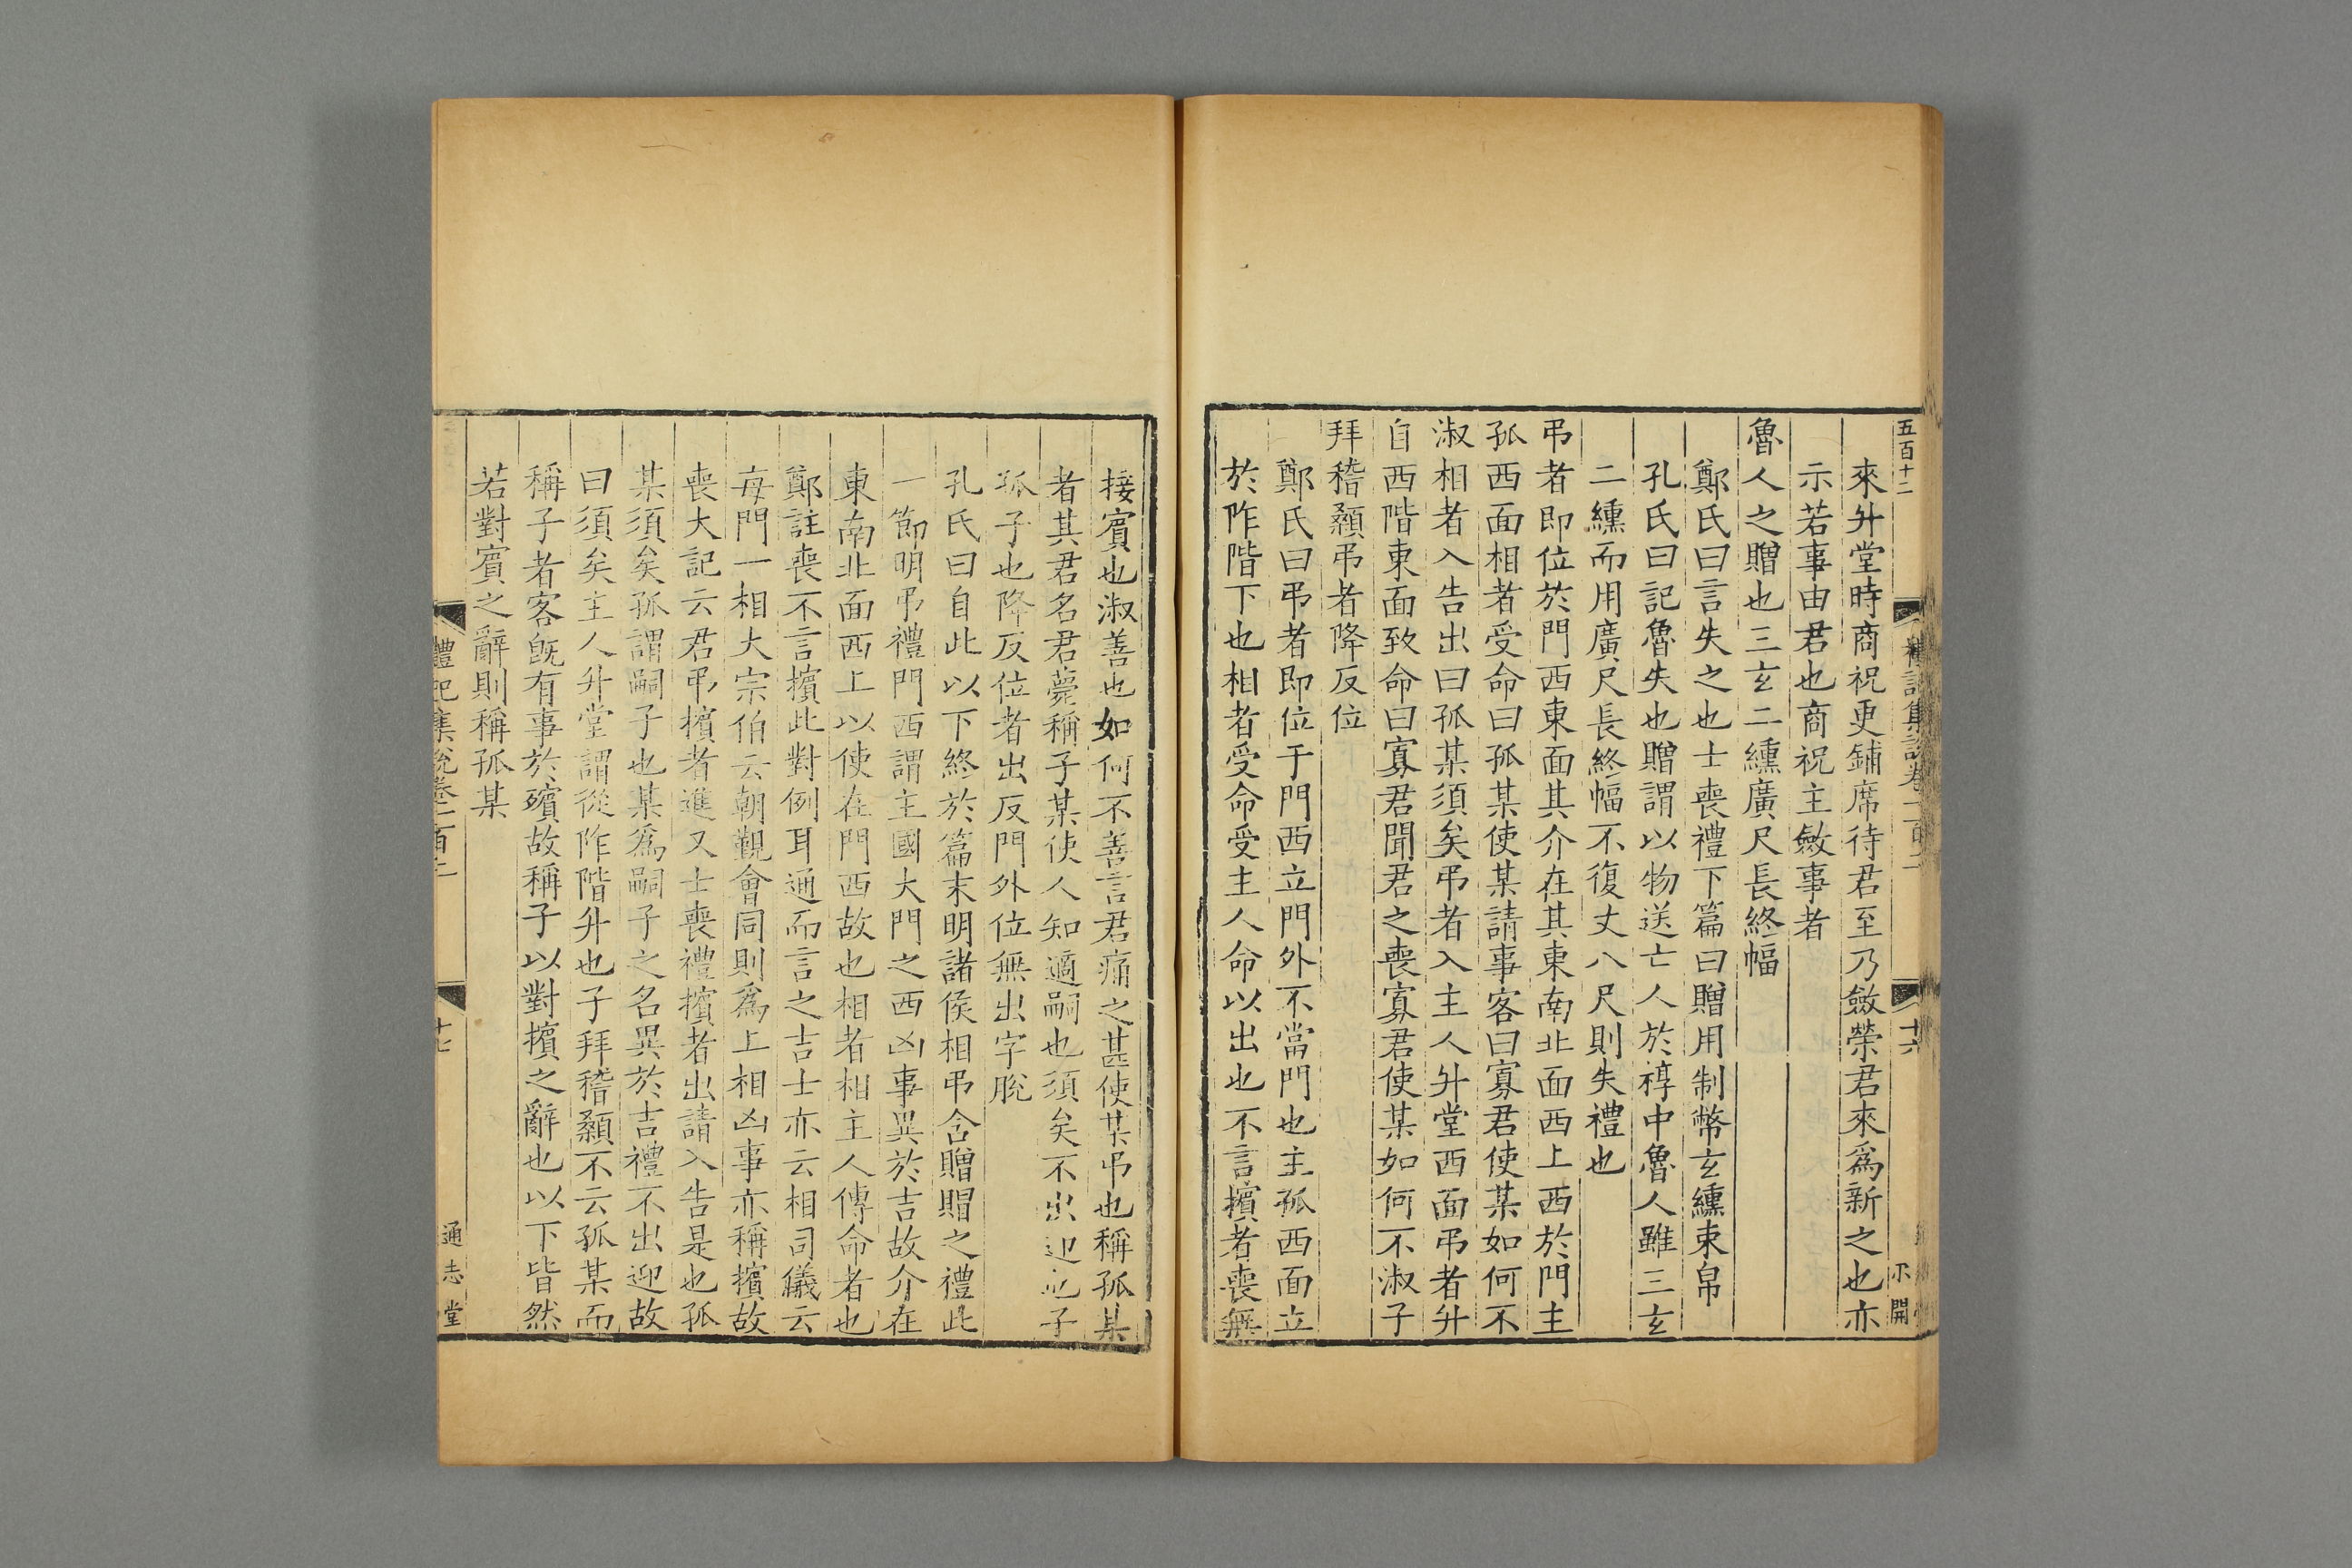 五百十二
禮記集說卷一百二
十六
不開
來升堂時商祝更鋪席待君至乃斂榮君來爲新之也亦
示若事由君也商祝主斂事者
魯人之贈也三玄二纁廣尺長終幅
鄭氏曰言失之也士喪禮下篇曰贈用制幣玄纁束帛
孔氏曰記魯失也贈謂以物送亡人於椁中魯人雖三玄
二纁而用廣尺長終幅不復丈八尺則失禮也
弔者即位於門西東面其介在其東南北面西上西於門主
孤西面相者受命曰孤某使某請事客曰寡君使某如何不
淑相者入告出曰孤某須矣弔者入主人升堂西面弔者升
自西階東面致命曰寡君聞君之喪寡君使某如何不淑子
拜稽顙弔者降反位
鄭氏曰弔者即位于門西立門外不當門也主孤西面立
於阼階下也相者受命受主人命以出也不言擯者喪無
接賓也淑善也如何不善言君痛之甚使某弔也稱孤某
者其君名君薨稱子某使人知適嗣也須矣不出迎也子
孤子也降反位者出反門外位無出字脫
孔氏曰自此以下終於篇末明諸侯相弔含贈賵之禮此
一節明弔禮門西謂主國大門之西凶事異於吉故介在
東南北面西上以使在門西故也相者相主人傳命者也
鄭註喪不言擯此對例耳通而言之吉士亦云相司儀云
每門一相大宗伯云朝覲會同則爲上相凶事亦稱擯故
喪大記云君弔擯者進又士喪禮擯者出請入告是也孤
某須矣孤謂嗣子也某爲嗣子之名異於吉禮不出迎故
曰須矣主人升堂謂從阼階升也子拜稽顙不云孤某而
稱子者客旣有事於殯故稱子以對擯之辭也以下皆然
若對賓之辭則稱孤某
禮記集說卷一百二
十七
通志堂